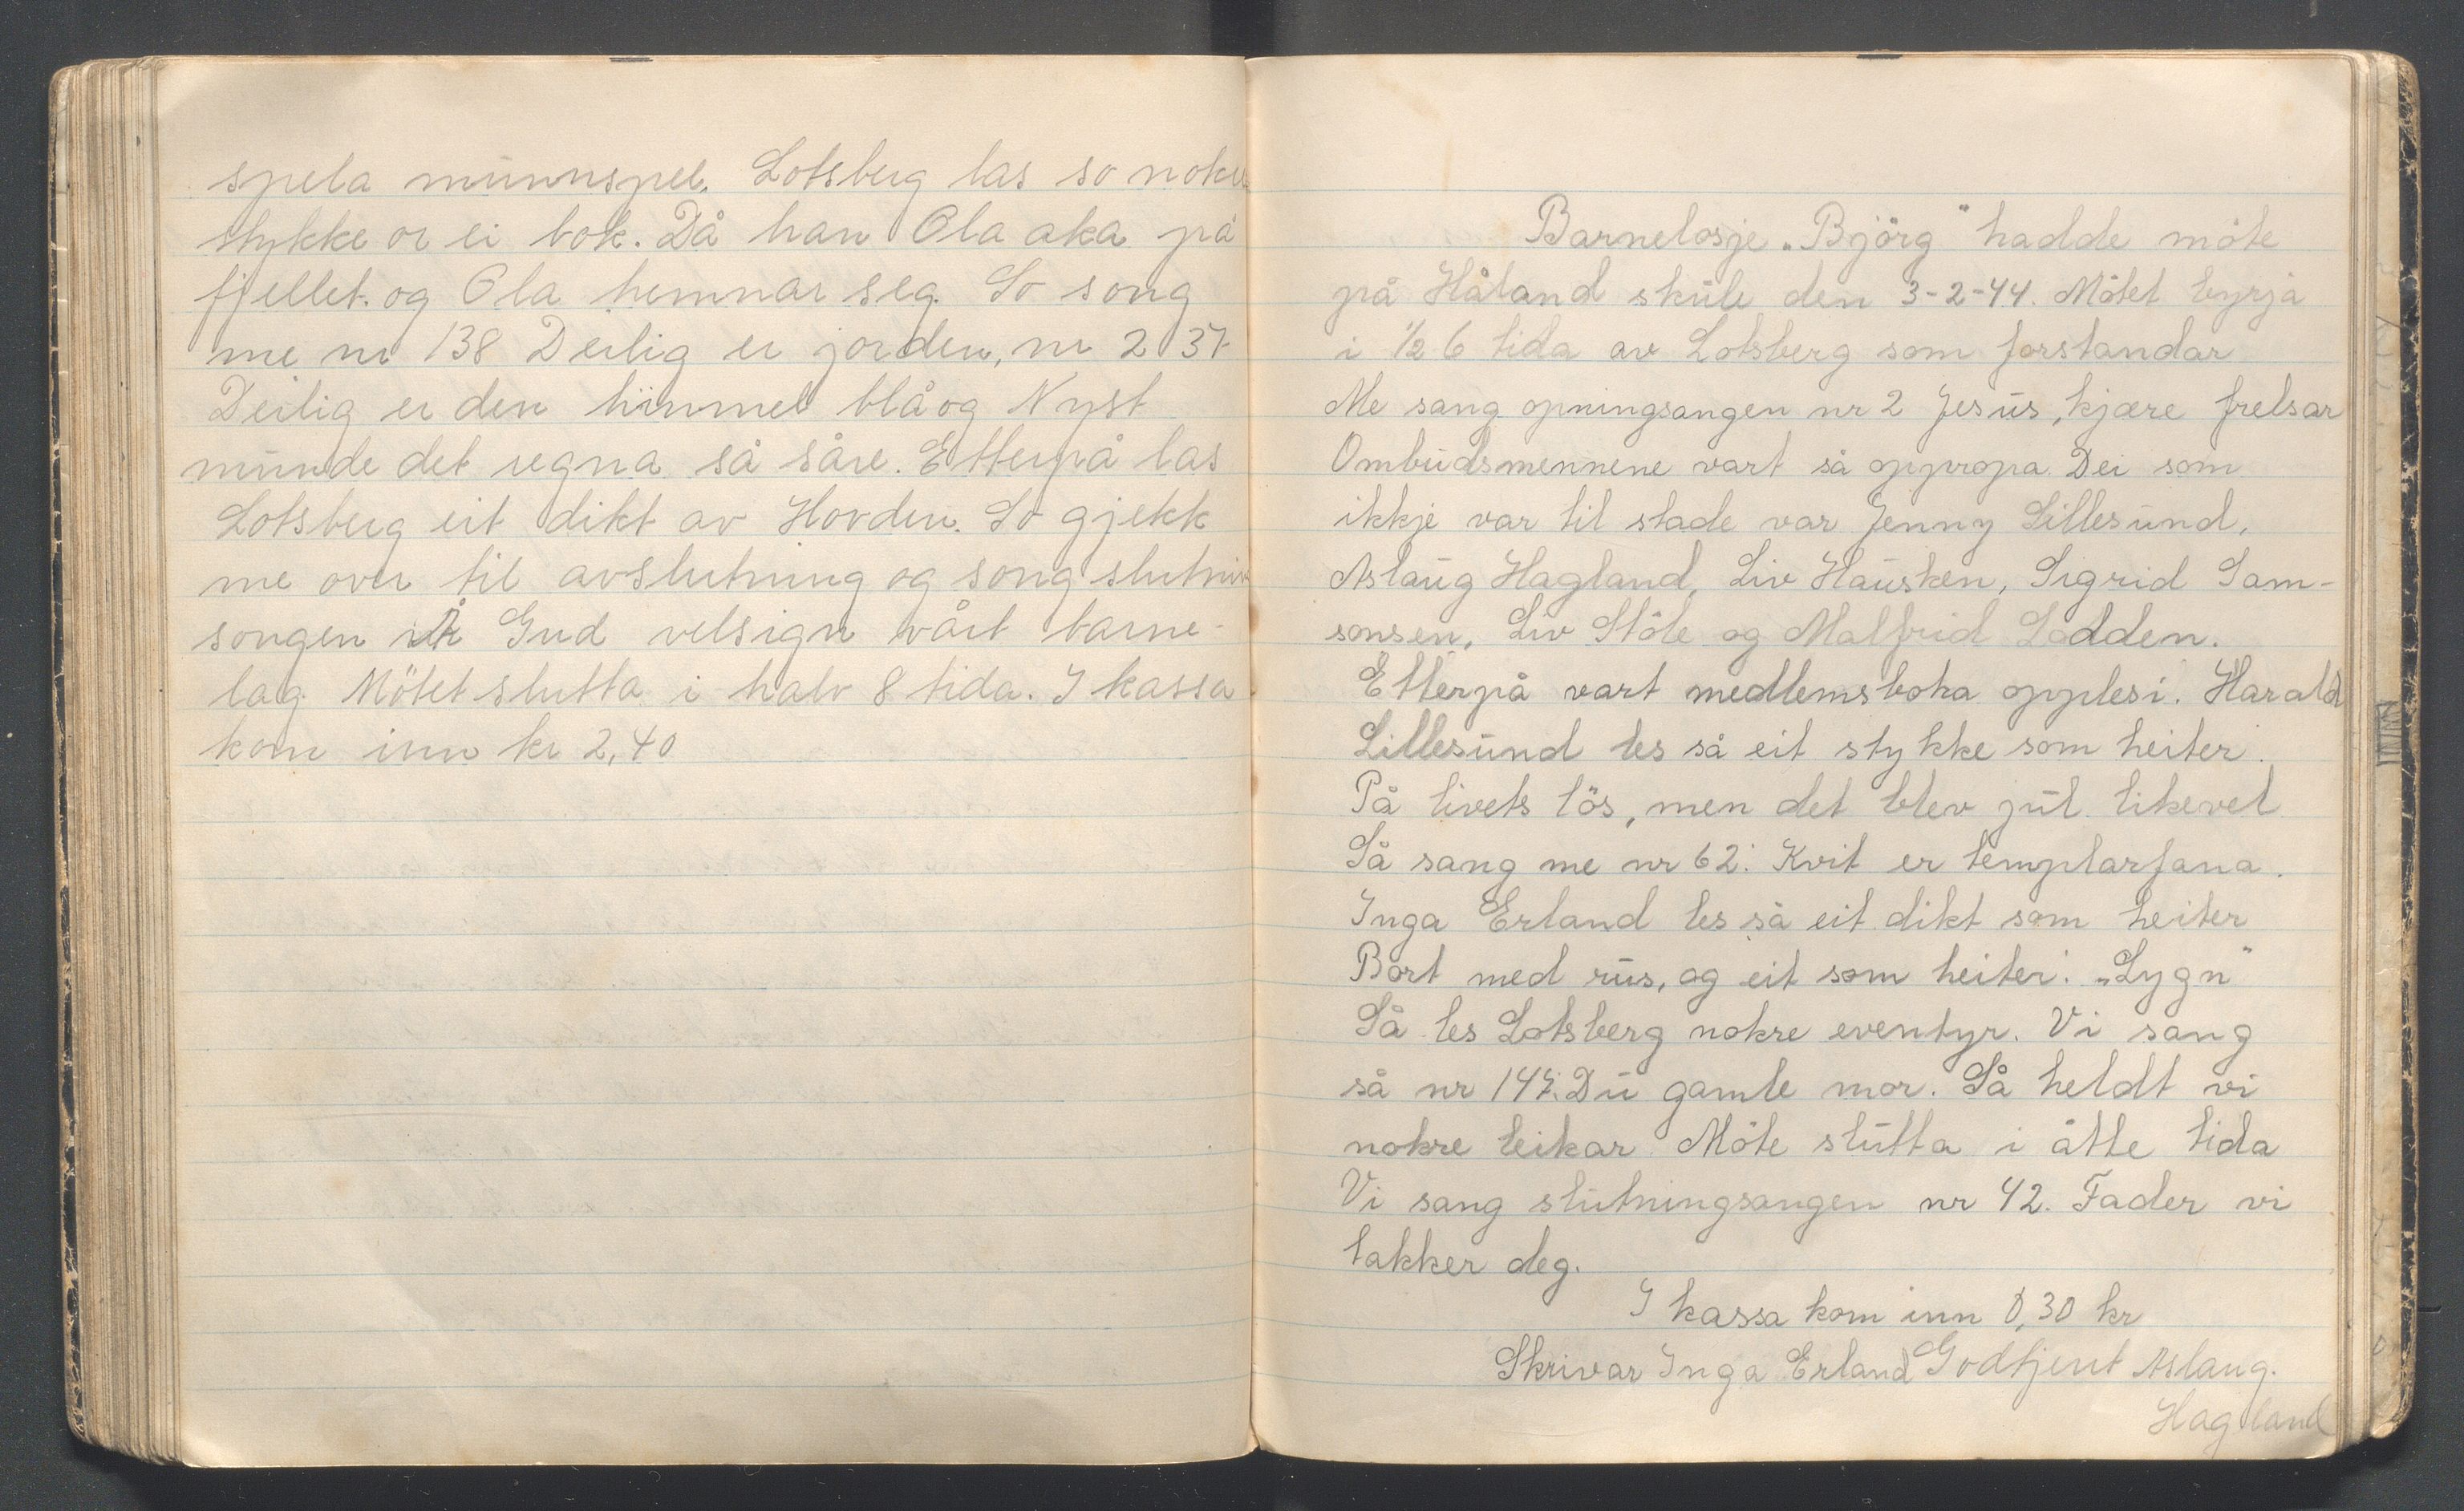 spela munnspel. Lotsberg las so nokre
stykke or ei bok. Då han Ola aka på
fjellet. og Ola hemnar seg. So song
me nr 138 Deilig er jorden, nr 237
Deilig er den himmel blå og Nyst
munde det regna så såre. Etterpå las
Lotsberg eit dikt av Hovden. So gjekk
me over til avslutning og song slutnings
songen Å Gud velsign vårt barne-
lag. Mötet slutta i halv 8 tida. I kassa
kom inn kr 2,40
Barnelosje „Björg" hadde möte
på Håland skule den 3-2-44. Mötet byrja
i ½ 6 tida av Lotsberg som forstandar
Me sang opningsangen nr 2 Jesus, kjære frelsar
Ombudsmennene vart så oppropa. Dei som
ikkje var til stade var Jenny Lillesund,
Aslaug Hagland, Liv Hausken, Sigrid Sam-
sonsen, Liv Stöle og Malfrid Sadden.
Etterpå vart medlemsboka opplesi. Harald
Lillesund les så eit stykke som heiter.
På livets lös, men det blev jul likevel
Så sang me nr 62: Kvit er templarfana.
Inga Erland les så eit dikt som heiter
Bort med rus, og eit som heiter: „Lygn"
Så les Lotsberg nokre eventyr. Vi sang
så nr 147: Du gamle mor. Så heldt vi
nokre leikar Möte slutta i åtte tida
Vi sang slutningsangen nr 42. Fader vi
takker deg.
I kassa kom inn 0,30 kr
Skrivar Inga Erland Godtjent Aslaug.
Hagland